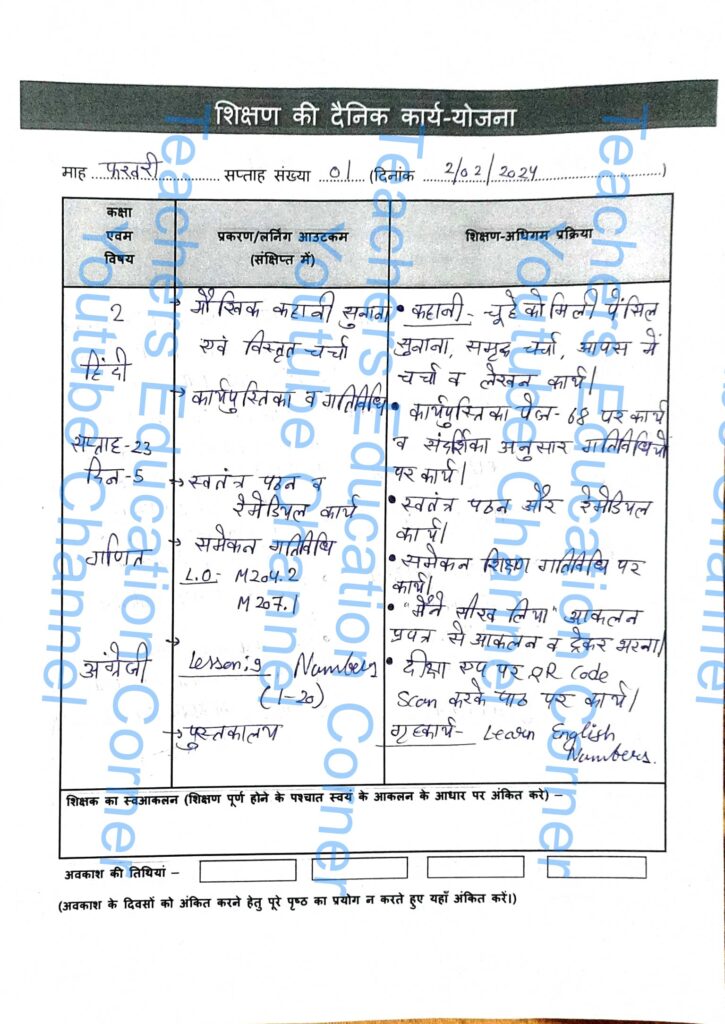 शिक्षण की दैनिक कार्य-योजना
माह फरवरी सप्ताह संख्या 01 (दिनांक 2/02/2024)
कक्षा
एवम
विषय
प्रकरण/लर्निंग आउटकम
(संक्षिप्त में)
शिक्षण-अधिगम प्रक्रिया
2
हिंदी
सप्ताह-23
दिन-5
गणित
अंग्रेजी
→ मौखिक कहानी सुनाना
एवं विस्तृत चर्चा
→ कार्यपुस्तिका व गतिविधि
→ स्वतंत्र पठन व
रेमेडियल कार्य
→ समेकन गतिविधि
L.O:- M204.2
M207.1
→
Lesson:9 Numbers
(1-20)
→ पुस्तकालय
• कहानी - चूहे को मिली पेंसिल
सुनाना, समृद्ध चर्चा, आपस में
चर्चा व लेखन कार्य।
• कार्यपुस्तिका पेज- 68 पर कार्य
व संदर्शिका अनुसार गतिविधियों
पर कार्य।
• स्वतंत्र पठन और रेमेडियल
कार्य।
• समेकन शिक्षण गतिविधि पर
कार्य।
• "मैंने सीख लिया" आकलन
प्रपत्र से आकलन व ट्रेकर भरना।
• दीक्षा एप पर QR Code
Scan करके पाठ पर कार्य।
गृहकार्य- Learn English
Numbers.
शिक्षक का स्वआकलन (शिक्षण पूर्ण होने के पश्चात स्वयं के आकलन के आधार पर अंकित करे) –
अवकाश की तिथियां –
(अवकाश के दिवसों को अंकित करने हेतु पूरे पृष्ठ का प्रयोग न करते हुए यहाँ अंकित करें।)
Teachers Education Corner
Youtube Channel
Teachers Education Corner
Youtube Channel
Teachers Education Corner
Youtube Channel